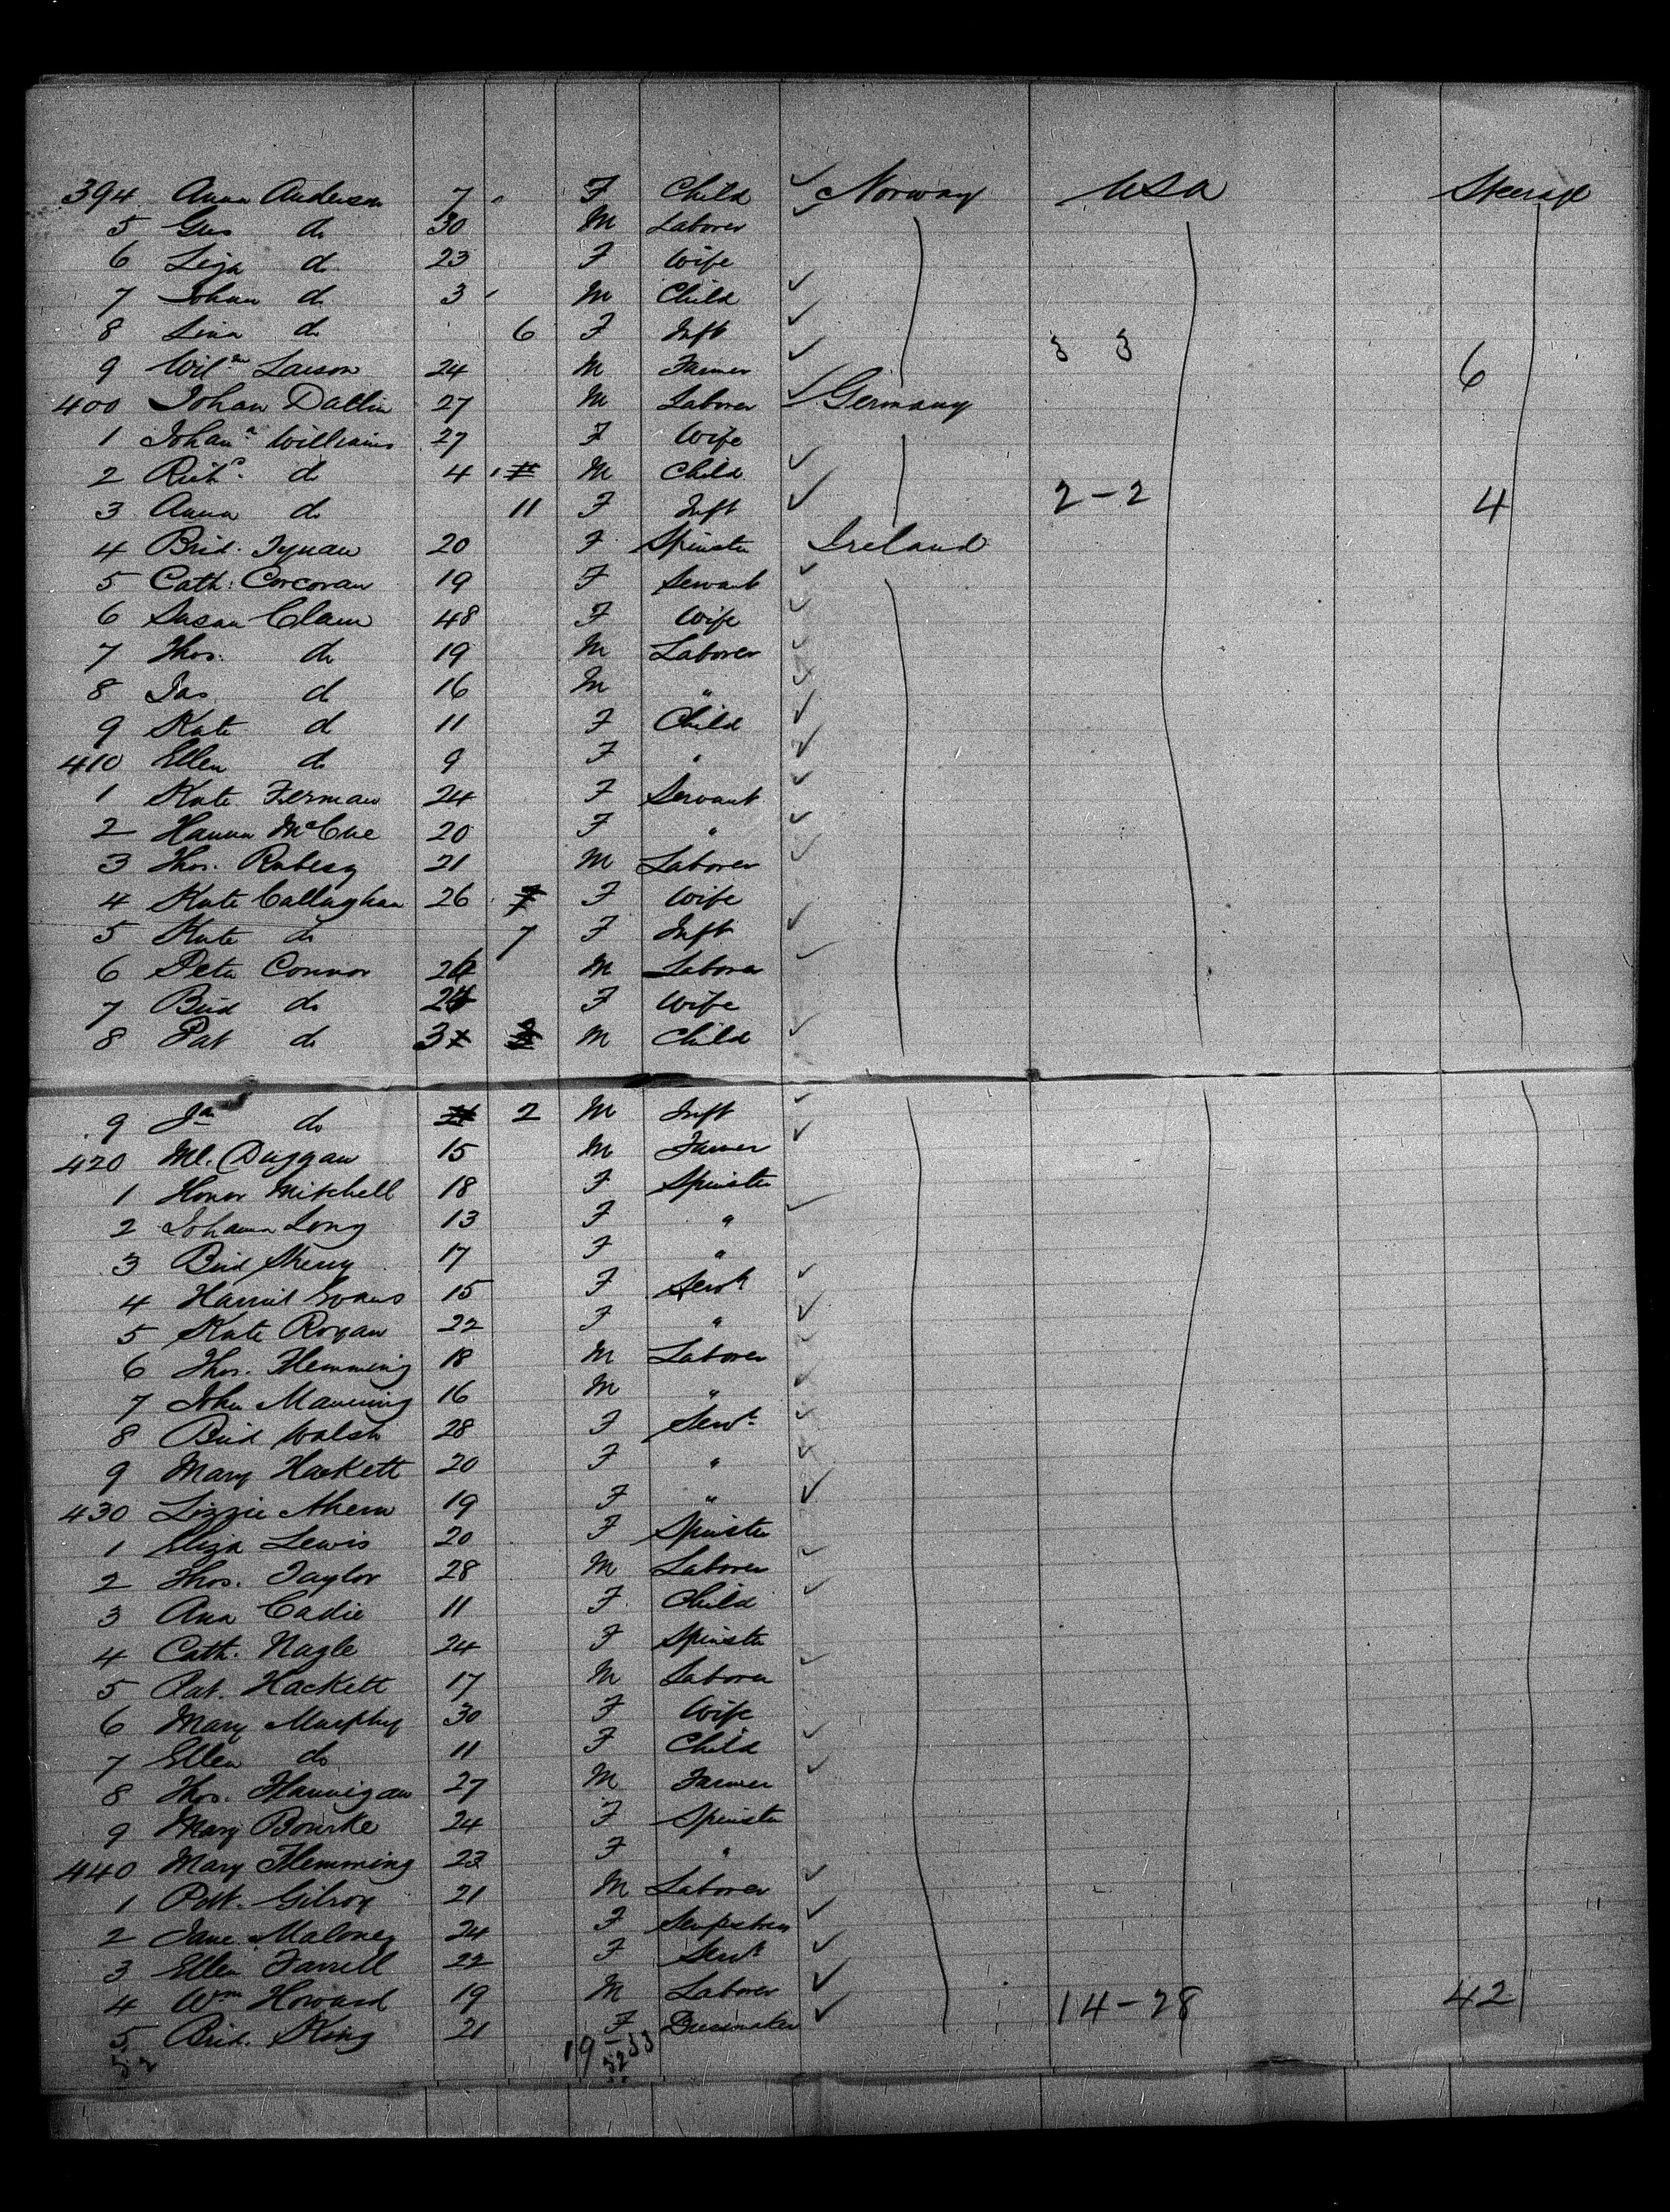 394 Anna Anderson 7 F Child ✓ Norway USA Steerage
5 Gus do 30 M Laborer ✓
6 Liza do 23 F Wife
7 Johan do 3 M Child ✓
8 Lina do 6 F Inft ✓ 3 3
9 Wilm Larson 24 M Farmer ✓ 6
400 Johan Dallin 27 M Laborer ✓ Germany
1 Johana Williams 27 F Wife
2 Richd do 4 M Child ✓
3 Anna do 11 F Inft ✓ 2-2 4
4 Brid. Tynan 20 F Spinster Ireland
5 Cath: Corcoran 19 F Servant ✓
6 Susan Clam 48 F Wife ✓
7 Thos. do 19 M Laborer ✓
8 Jas do 16 M " ✓
9 Kate do 11 F Child ✓
410 Ellen do 9 F " ✓
1 Kate 24 F Servant ✓
2 Hanna McCue 20 F " ✓
3 Thos. 21 M Laborer ✓
4 Kate Callaghan 26 F Wife
5 Kate do 7 F Inft ✓
6 Peter Connor 26 M Laborer ✓
7 Brid do 24 F Wife
8 Pat do 3 M Child ✓
9 Ja do 2 M Inft ✓
420 Ml. Duggan 15 M Farmer ✓
1 Honor Mitchell 18 F Spinster
2 Johanna Long 13 F " ✓
3 Brid Sherry 17 F "
4 Harriet Evans 15 F Servt ✓
5 Kate Rogan 22 F " ✓
6 Thos. Flemming 18 M Laborer ✓
7 John Manning 16 M " ✓
8 Brid Walsh 28 F Servt ✓
9 Mary Hackett 20 F " ✓
430 Lizzie Ahern 19 F " ✓
1 Eliza Lewis 20 F Spinster
2 Thos. Taylor 28 M Laborer ✓
3 Ana Cadie 11 F Child ✓
4 Cath. Nagle 24 F Spinster
5 Pat. Hackett 17 M Laborer ✓
6 Mary Murphy 30 F Wife
7 Ellen do 11 F Child ✓
8 Thos. Flannigan 27 M Farmer ✓
9 Mary Bourke 24 F Spinster
440 Mary Flemming 23 F "
1 Patt. Gilroy 21 M Laborer ✓
2 Jane Maloney 24 F Sempstress ✓
3 Ellen Farrell 22 F Servt ✓
4 Wm Howard 19 M Laborer ✓ 14-28 42
5 Brid. King 21 F Dressmaker ✓
52 19-33
52